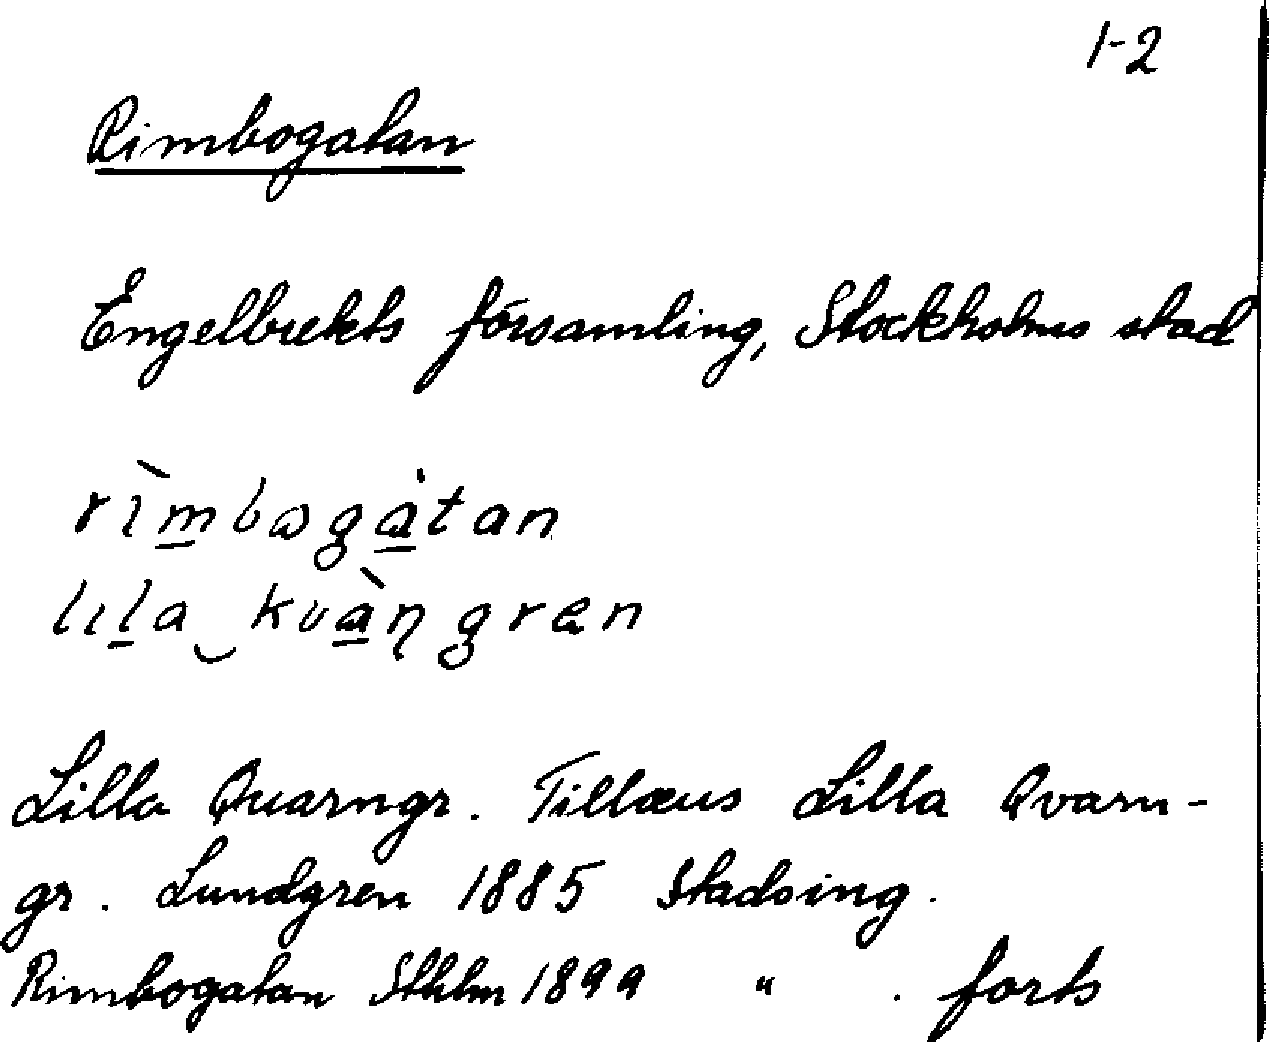 1-2
Rimbogatan
Engelbrekts församling, Stockholms stad
rìmbωgȧtan
lıla‿kvàŋgræn
Lilla Quarngr. Tillæus Lilla Qvarn-
gr. Lundgren 1885 Stadsing.
Rimbogatan Sthlm 1899 " . forts